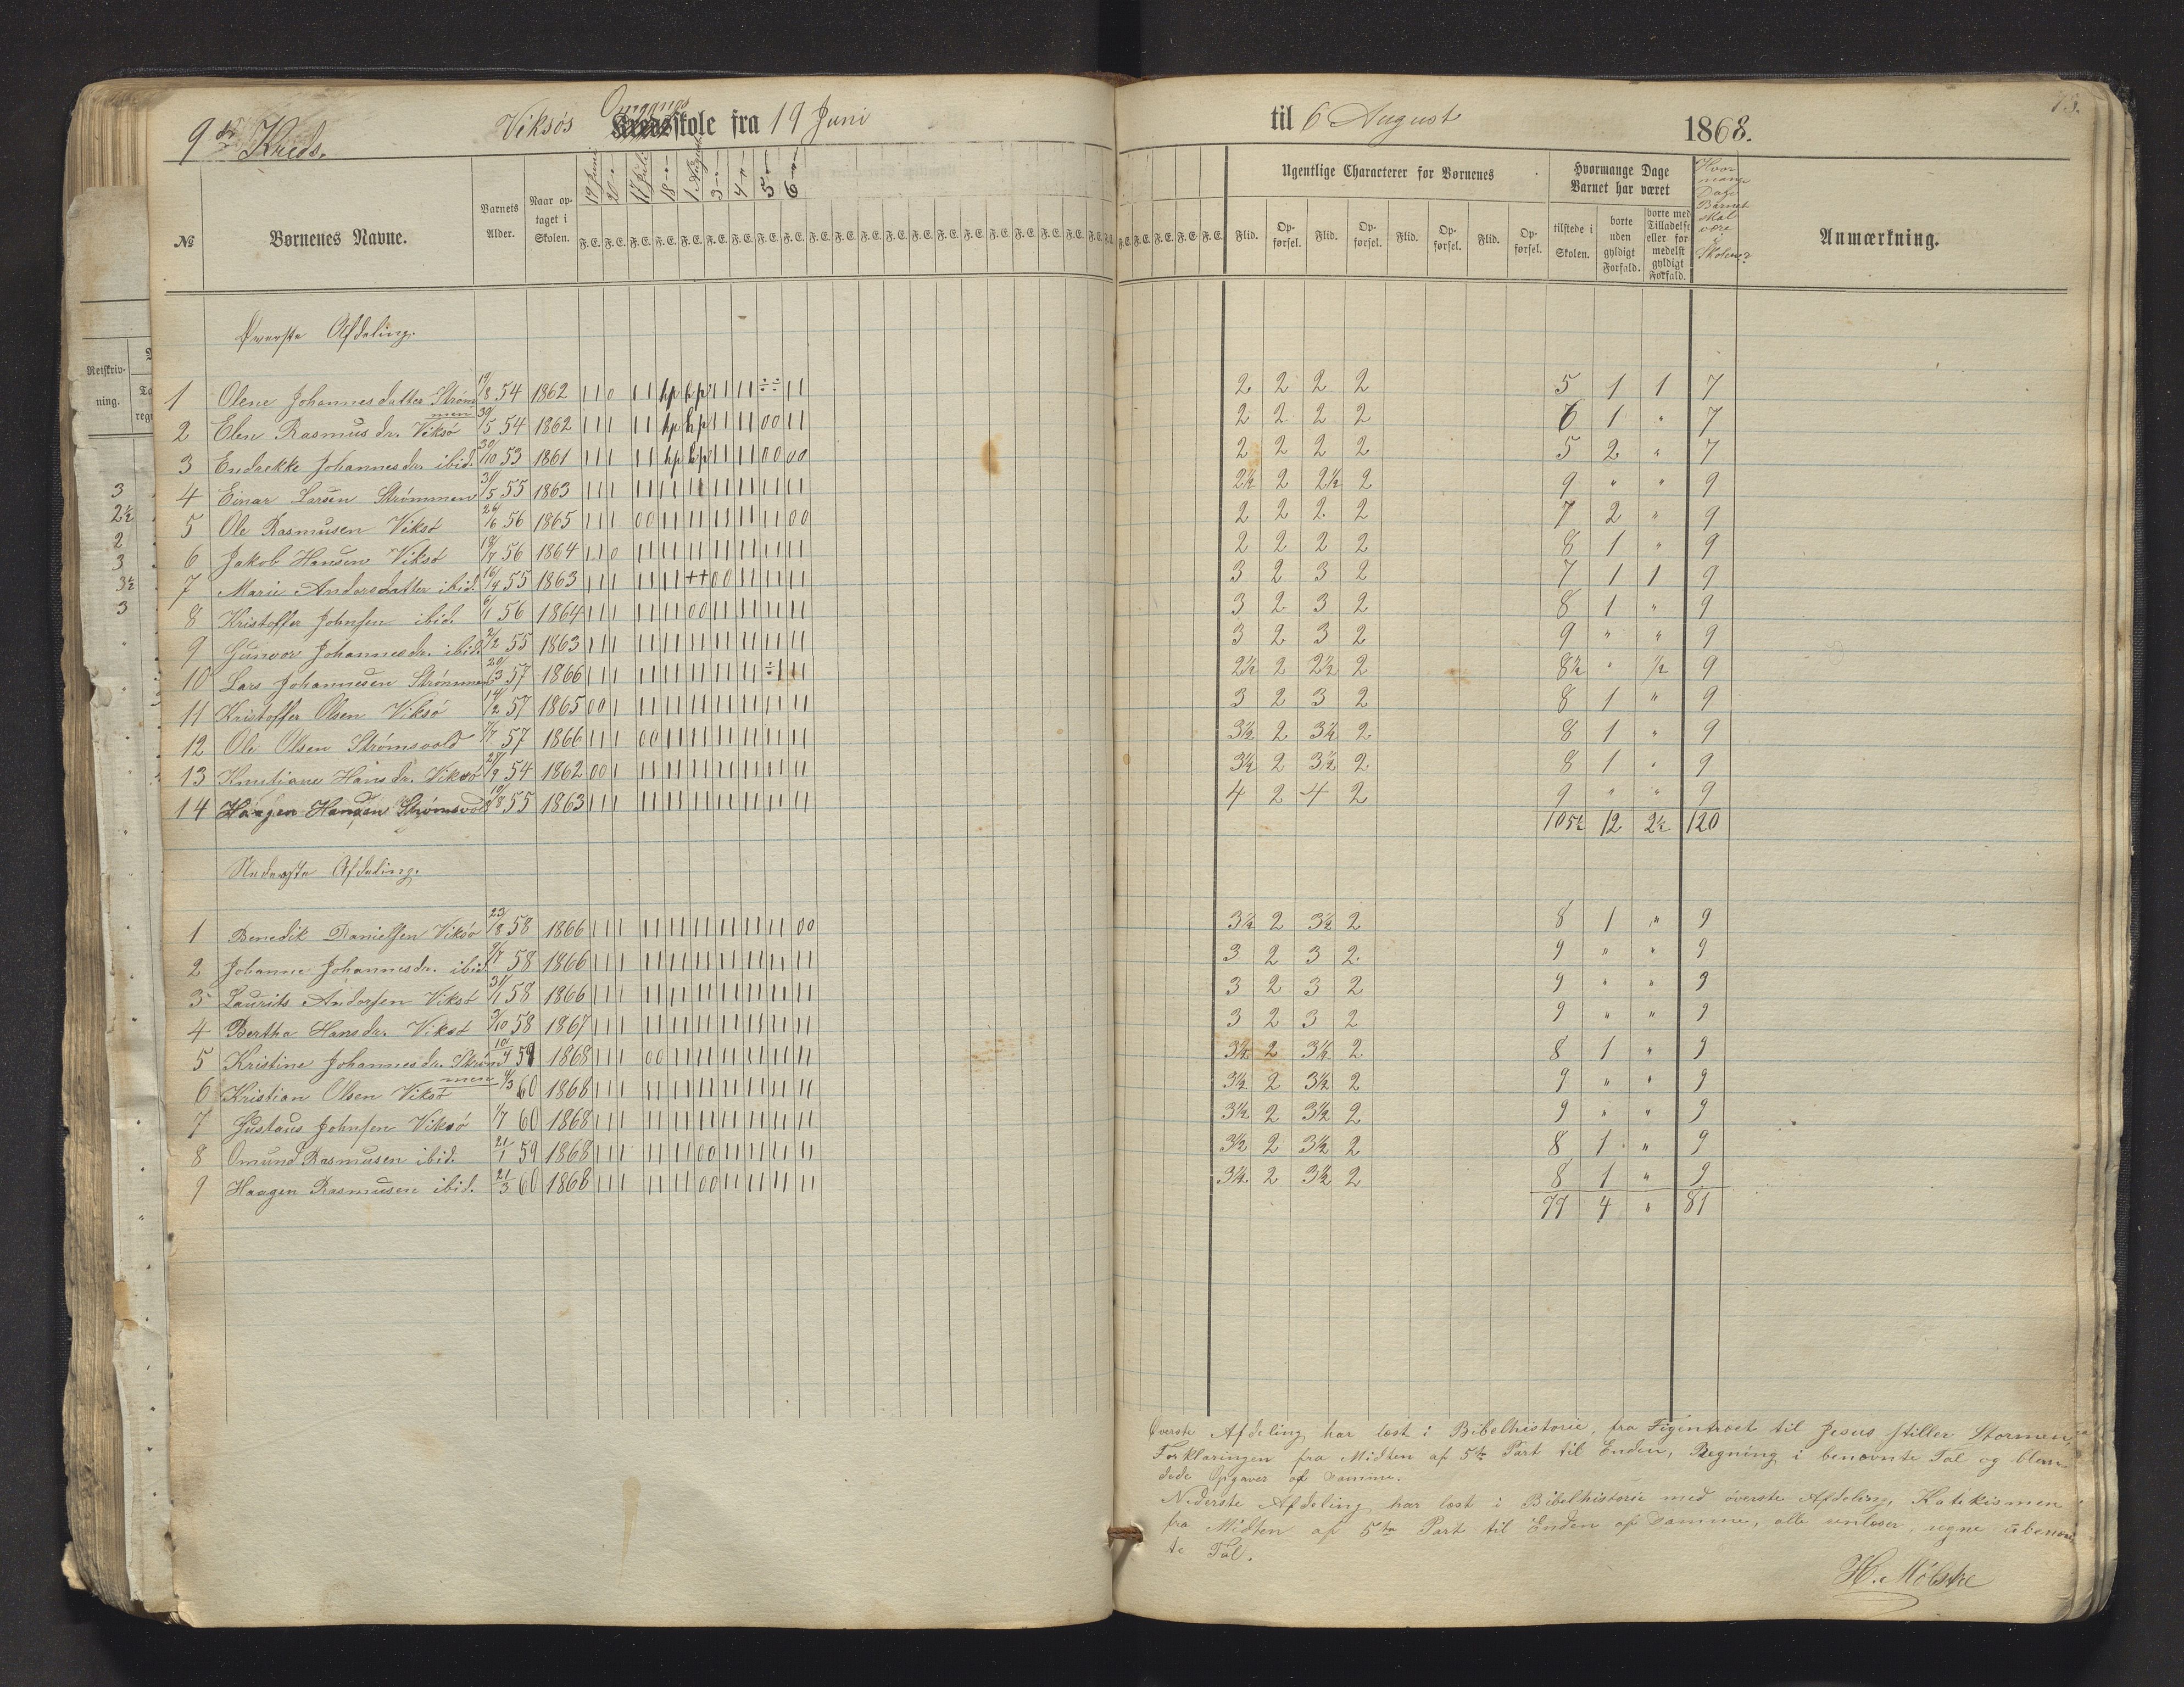 9de Kreds. Viksøs Omgangs Kredsskole fra 19 Juni til 6 August 1868.
№ Børnenes Navne. Barnets Alder. Naar optaget i Skolen. 19 Juni 20 " 17 Juli 18 " 1 August 3 " 4 " 5 " 6 "
F. E. F. E. F. E. F. E. F. E. F. E. F. E. F. E. F. E.
Ugentlige Characterer for Børnenes
Flid. Opførsel. Flid. Opførsel. Flid. Opførsel. Flid. Opførsel.
Hvormange Dage Barnet har været
tilstede i Skolen. borte uden gyldigt Forfald. borte med Tilladelse eller formedelst gyldigt Forfald.
Hvor mange Dage Barnet skal være i Skolen?
Anmærkning.
Øverste Afdeling.
1 Olene Johannesdatter Strømmen 19/8 54 1862 2 2 2 2 5 1 1 7
2 Elen Rasmusdr. Viksø 30/5 54 1862 2 2 2 2 6 1 " 7
3 Endrekke Johannesdr. ibid. 30/10 53 1861 2 2 2 2 5 2 " 7
4 Einar Larsen Strømmen 31/5 55 1863 2½ 2 2½ 2 9 " " 9
5 Ole Rasmusen Viksø 26/6 56 1865 2 2 2 2 7 2 " 9
6 Jakob Hansen Viksø 18/7 56 1864 2 2 2 2 8 1 " 9
7 Marie Andersdatter ibid. 16/4 55 1863 3 2 3 2 7 1 1 9
8 Kristoffer Johnsen ibid. 6/1 56 1864 3 2 3 2 8 1 " 9
9 Gunvor Johannesdr. ibid. 2/2 55 1863 3 2 3 2 9 " " 9
10 Lars Johannesen Strømmen 20/3 57 1866 2½ 2 2½ 2 8½ " ½ 9
11 Kristoffer Olsen Viksø 14/2 57 1865 3 2 3 2 8 1 " 9
12 Ole Olsen Strømsvold 7/7 57 1866 3½ 2 3½ 2 8 1 " 9
13 Hansdr. Viksø 54 1862 3½ 2 3½ 2 8 1 " 9
14 Haagen Hansen Strømsvold 19/8 55 1863 4 2 4 2 9 " " 9
105½ 12 2½ 120
Nederste Afdeling.
1 Benedik Danielsen Viksø 23/8 58 1866 3½ 2 3½ 2 8 1 " 9
2 Johanne Johannesdr. ibid. 9/7 58 1866 3 2 3 2 9 " " 9
3 Laurits Andersen Viksø 31/1 58 1866 3 2 3 2 9 " " 9
4 Bertha Hansdr. Viksø 3/10 58 1867 3 2 3 2 9 " " 9
5 Kristine Johannesdr. Strømmen 10/4 59 1868 3½ 2 3½ 2 8 1 " 9
6 Kristian Olsen Viksø 4/3 60 1868 3½ 2 3½ 2 9 " " 9
7 Gustaus Johnsen Viksø 1/7 60 1868 3½ 2 3½ 2 9 " " 9
8 Omund Rasmusen ibid. 21/1 59 1868 3½ 2 3½ 2 8 1 " 9
9 Haagen Rasmusen ibid. 21/3 60 1868 3½ 2 3½ 2 8 1 " 9
77 4 " 81
Øverste Afdeling har læst i Bibelhistorie, fra Figentræet til Jesus stiller Stormen,
Forklaringen fra Midten af 5te Part til Enden, Regning i benævnte Tal og blan-
dede Opgaver af samme.
Nederste Afdeling har læst i Bibelhistorie med øverste Afdeling, Katekismen
fra Midten af 5te Part til Enden af samme, alle , regne ubenævn-
te Tal.
H. Mølstre
Retskrivning.
3
2½
2
3
3½
3